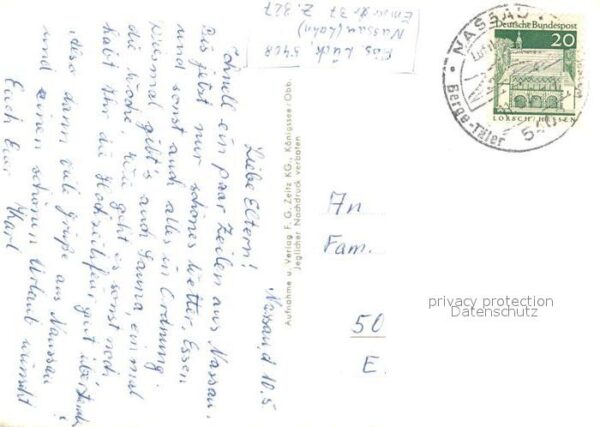 Nassau, d 10.5
Liebe Eltern!
Schnell ein paar Zeilen aus Nassau.
Bis jetzt nur schönes Wetter. Essen
und sonst auch alles in Ordnung.
Diesmal gibt's auch Sauna, einmal
die Woche. Wie geht es sonst noch,
habt Ihr die Hochzeitsfeier gut überstanden
also dann viele Grüße aus Nassau
und einen schönen Urlaub wünscht
Euch Euer Karl
Lück. 5408
Nassau (Lahn)
Emserstr 37 Z. 327
Aufnahme u. Verlag F. G. Zeitz KG., Königssee/Obb.
Jeglicher Nachdruck verboten
An
Fam.
50
E.
NASSAU
Berge-Täler
540
Deutsche Bundespost
20
LORSCH/HESSEN
privacy protection
Datenschutz